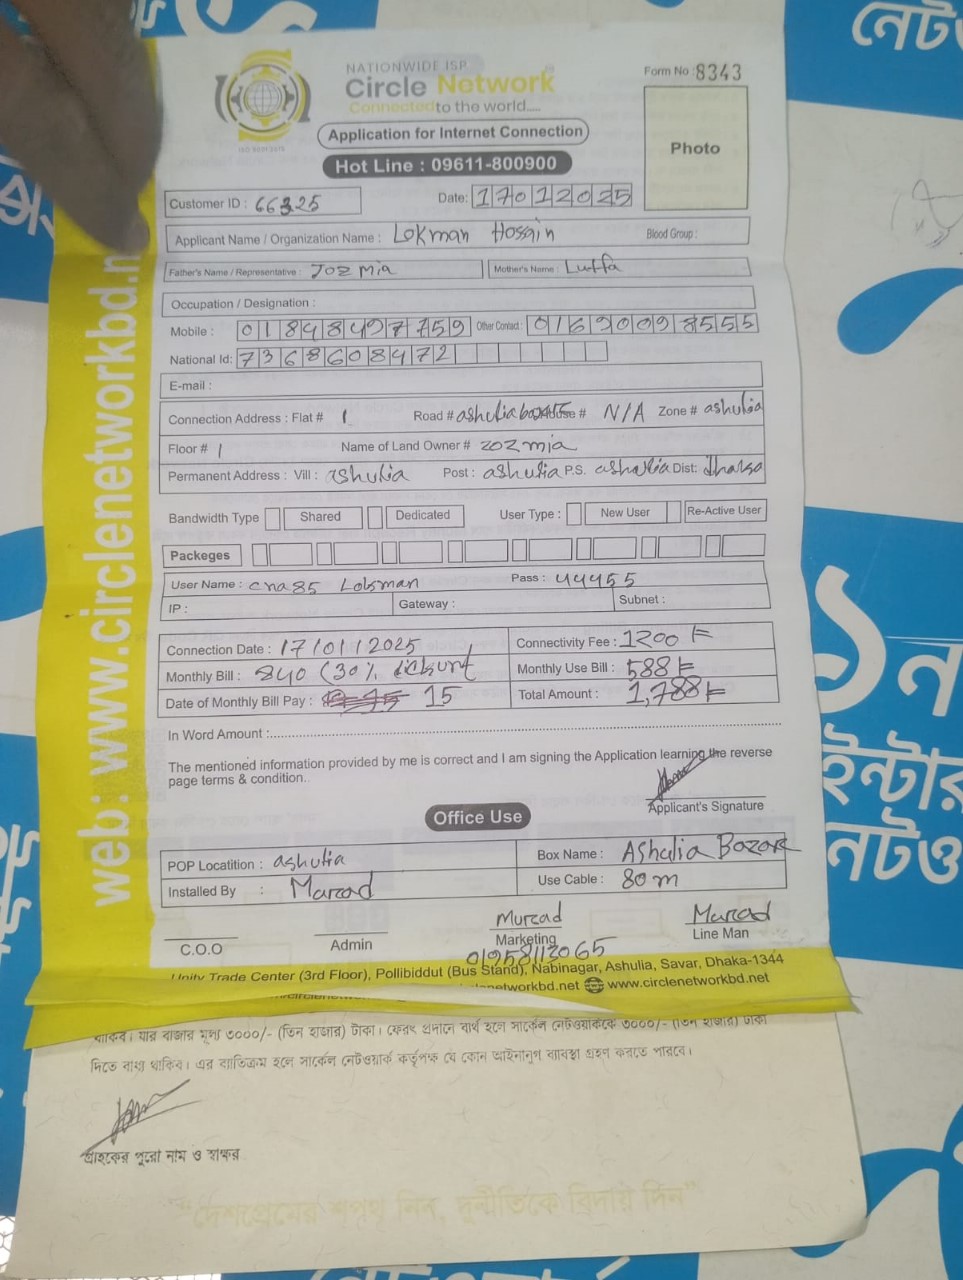 NATIONWIDE ISP
Circle Network
Connected to the world....
ISO 9001:2015
Form No : 8343
Application for Internet Connection
Photo
Hot Line : 09611-800900
Customer ID : 66325 Date: 17012025
Applicant Name / Organization Name : Lokman Hossain Blood Group :
Father's Name / Representative : Joz mia Mother's Name : Lutfa
Occupation / Designation :
Mobile : 01848497759 Other Contact : 01690098555
National Id: 7368608472
E-mail :
Connection Address : Flat # 1 Road # ashulia bazar # N/A Zone # ashulia
Floor # 1 Name of Land Owner # zoz mia
Permanent Address : Vill : ashulia Post : ashulia P.S. ashulia Dist: Dhaka
Bandwidth Type Shared Dedicated User Type : New User Re-Active User
Packeges
User Name : cna85 Lokman Pass : 44455
IP : Gateway : Subnet :
Connection Date : 17/01/2025 Connectivity Fee : 1200/=
Monthly Bill : 840 (30% Monthly Use Bill : 588/=
Date of Monthly Bill Pay : 15 Total Amount : 1,788/=
In Word Amount :
The mentioned information provided by me is correct and I am signing the Application learning the reverse
page terms & condition..
Applicant's Signature
Office Use
POP Locatition : ashulia Box Name : Ashulia Bazar
Installed By : Marzad Use Cable : 80m
Murzad Marzad
C.O.O Admin Marketing Line Man
01958113065
Unity Trade Center (3rd Floor), Pollibiddut (Bus Stand), Nabinagar, Ashulia, Savar, Dhaka-1344
networkbd.net www.circlenetworkbd.net
web : www.circlenetworkbd.n
থাকিব। যার বাজার মূল্য ৩০০০/- (তিন হাজার) টাকা। ফেরৎ প্রদানে ব্যর্থ হলে সার্কেল নেটওয়ার্ককে ৩০০০/- (তিন হাজার) টাকা
দিতে বাধ্য থাকিব। এর ব্যতিক্রম হলে সার্কেল নেটওয়ার্ক কর্তৃপক্ষ যে কোন আইনানুগ ব্যবস্থা গ্রহণ করতে পারবে।
গ্রাহকের পুরো নাম ও স্বাক্ষর
"দেশপ্রেমের শপথ নিন, দুর্নীতিকে বিদায় দিন"